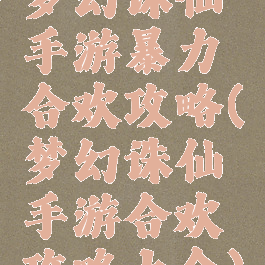 梦幻诛仙
手游暴力
合欢攻略(
梦幻诛仙
手游合欢
攻略大全)